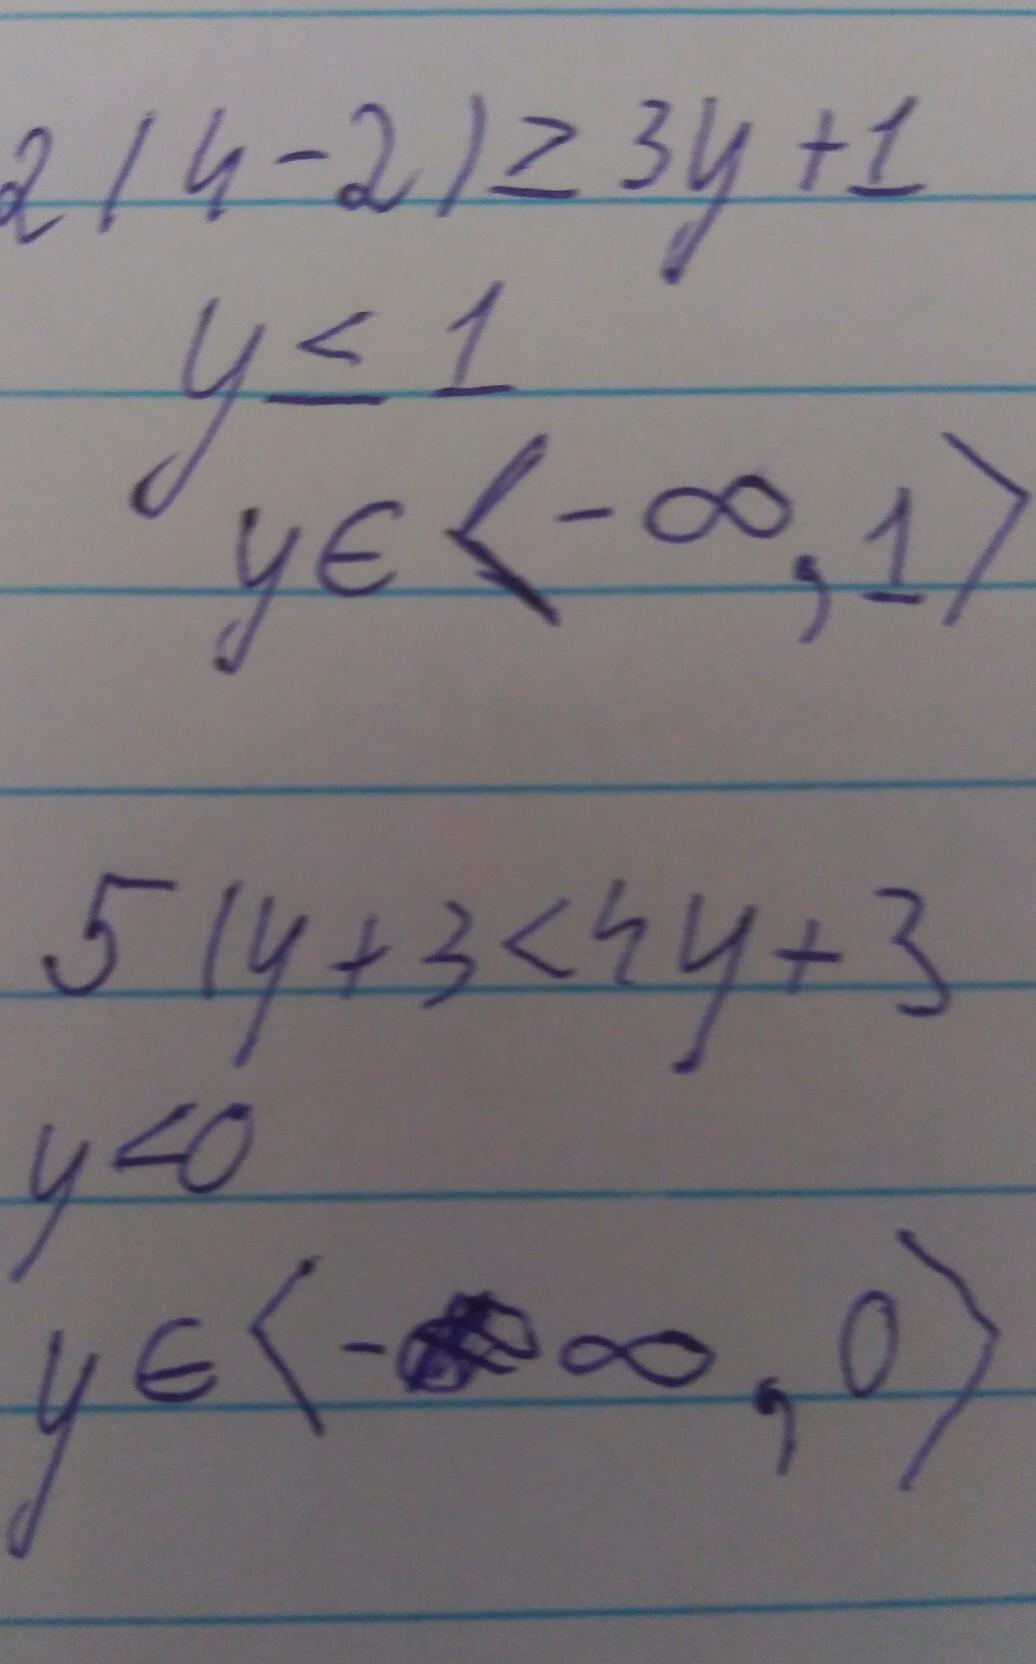 2(4-2)≥3y+1
y≤1
y∈⟨-∞,1⟩
5(y+3<4y+3
y<0
y∈⟨-∞,0⟩